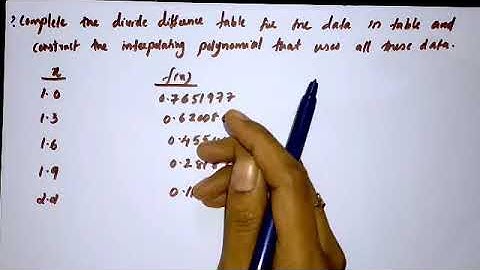 ? Complete the divide difference table for the data in table and
construct the interpolating polynomial that uses all these data.
x f(x)
1.0 0.7651977
1.3 0.62008
1.6 0.455
1.9 0.281
2.2 0.11